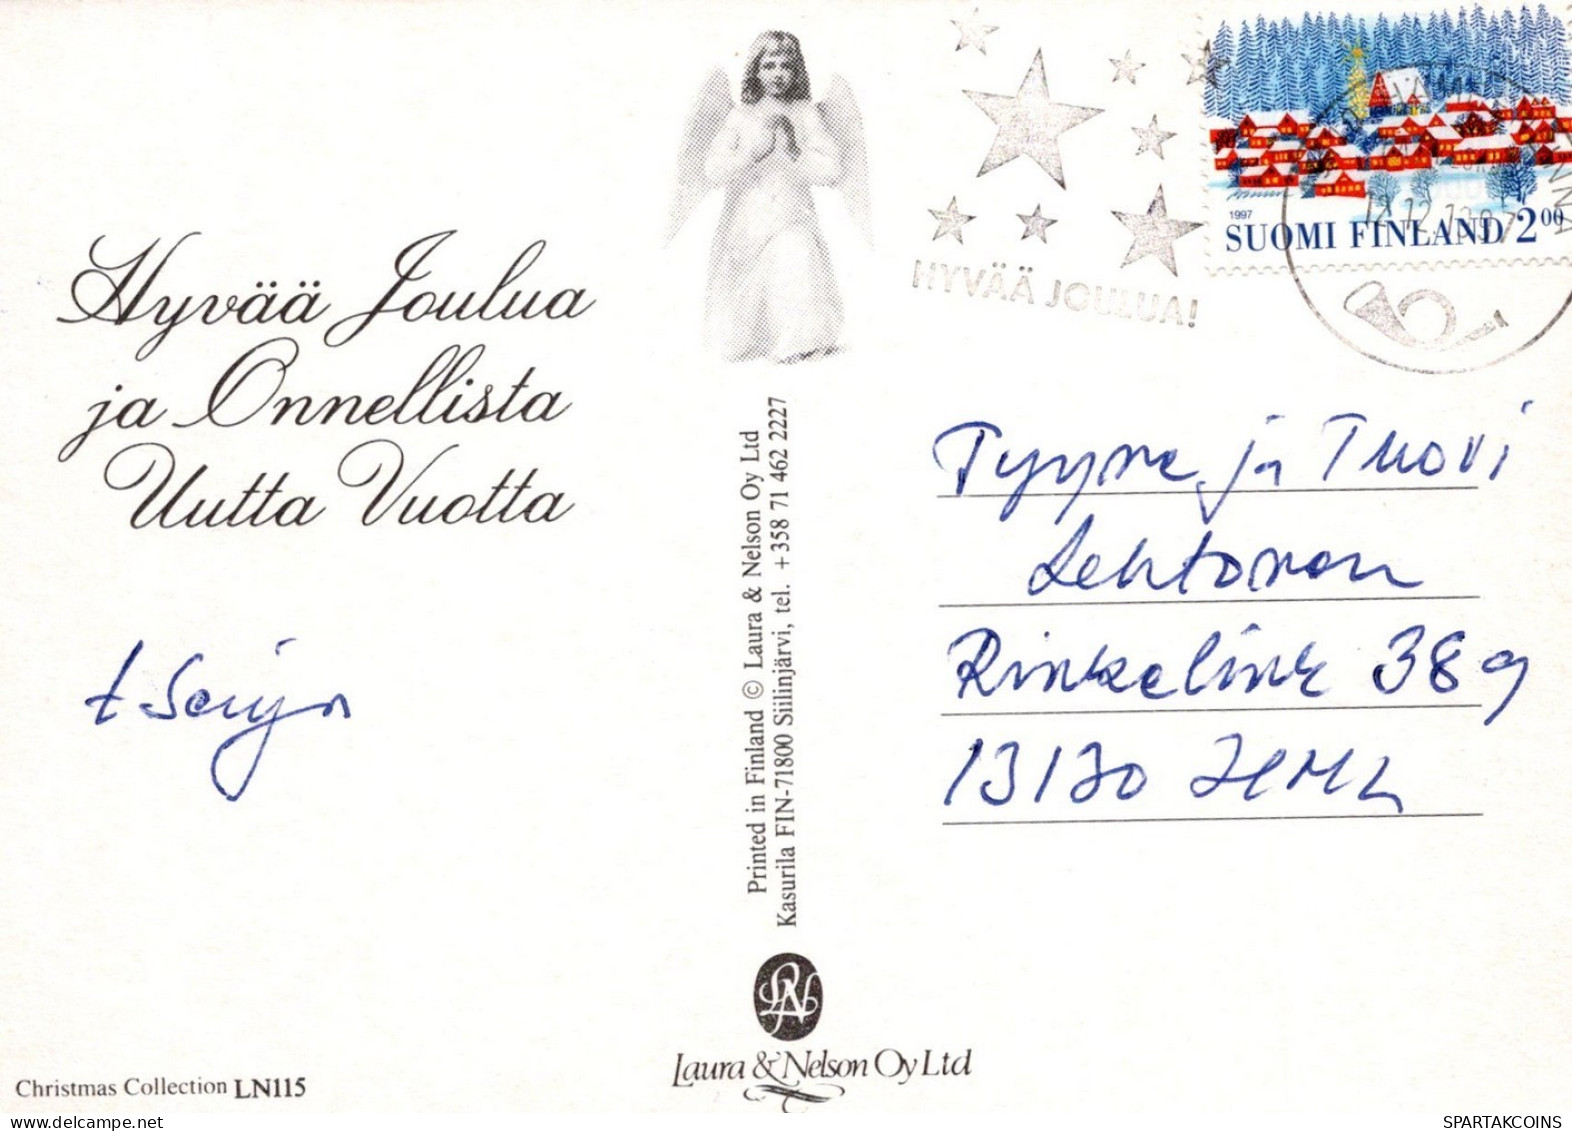 Hyvää Joulua
ja Onnellista
Uutta Vuotta
t Seija
Christmas Collection LN115
Printed in Finland © Laura & Nelson Oy Ltd
Kasurila FIN-71800 Siilinjärvi, tel. +358 71 462 2227
LN
Laura & Nelson Oy Ltd
HYVÄÄ JOULUA!
1997
SUOMI FINLAND 200
Tyyne ja Tuovi
Lehtonen
Rinkelink 38 g
13130 HML
SPARTAKCOINS